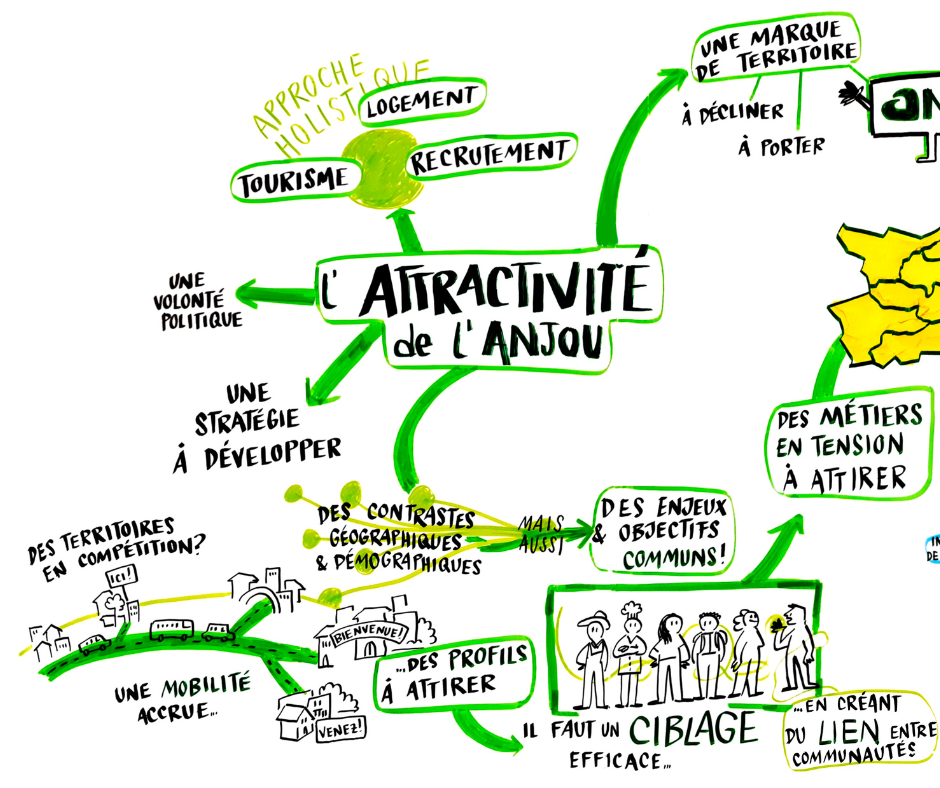 APPROCHE
HOLISTIQUE
LOGEMENT
RECRUTEMENT
TOURISME
UNE MARQUE
DE TERRITOIRE
À DÉCLINER
À PORTER
L'ATTRACTIVITÉ
de L'ANJOU
UNE
VOLONTÉ
POLITIQUE
UNE
STRATÉGIE
À DÉVELOPPER
DES MÉTIERS
EN TENSION
À ATTIRER
DES CONTRASTES
GÉOGRAPHIQUES
& DÉMOGRAPHIQUES
MAIS
AUSSI
DES ENJEUX
& OBJECTIFS
COMMUNS!
DES TERRITOIRES
EN COMPÉTITION?
ICI!
BIENVENUE!
VENEZ!
UNE MOBILITÉ
ACCRUE...
...DES PROFILS
À ATTIRER
IL FAUT UN CIBLAGE
EFFICACE...
...EN CRÉANT
DU LIEN ENTRE
COMMUNAUTÉS